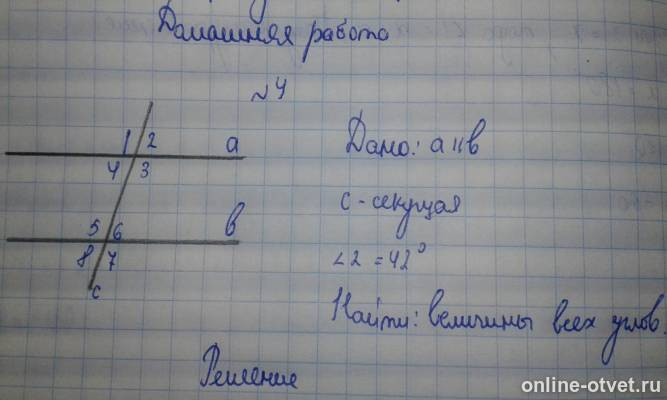 Домашняя работа
№4
1 2 a
4 3
5 6 b
8 7
c
Дано: a ıı b
c - секущая
∠2 = 42°
Найти: величины всех углов.
Решение
online-otvet.ru